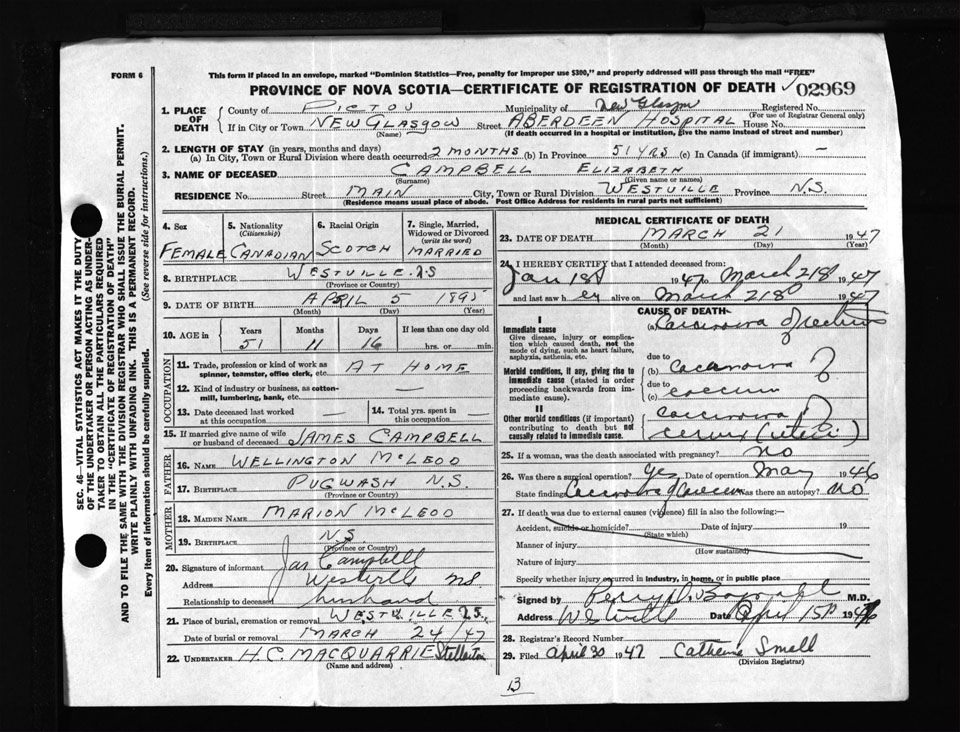 FORM 6
This form if placed in an envelope, marked "Dominion Statistics—Free, penalty for improper use $300," and properly addressed will pass through the mail "FREE"
PROVINCE OF NOVA SCOTIA—CERTIFICATE OF REGISTRATION OF DEATH 02969
1. PLACE OF DEATH
County of PICTOU Municipality of New Glasgow Registered No.
(For use of Registrar General only)
If in City or Town NEW GLASGOW Street ABERDEEN HOSPITAL House No.
(Name) (If death occurred in a hospital or institution, give the name instead of street and number)
2. LENGTH OF STAY (in years, months and days)
(a) In City, Town or Rural Division where death occurred 2 MONTHS (b) In Province 51 YRS (c) In Canada (if immigrant) —
3. NAME OF DECEASED CAMPBELL ELIZABETH
(Surname) (Given name or names)
RESIDENCE No. Street MAIN City, Town or Rural Division WESTVILLE Province N.S.
(Residence means usual place of abode. Post Office Address for residents in rural parts not sufficient)
4. Sex FEMALE
5. Nationality (Citizenship) CANADIAN
6. Racial Origin SCOTCH
7. Single, Married, Widowed or Divorced (write the word) MARRIED
8. BIRTHPLACE WESTVILLE NS
(Province or Country)
9. DATE OF BIRTH APRIL 5 1895
(Month) (Day) (Year)
10. AGE in Years Months Days If less than one day old
51 11 16 hrs. or min.
OCCUPATION
11. Trade, profession or kind of work as spinner, teamster, office clerk, etc. AT HOME
12. Kind of industry or business, as cotton-mill, lumbering, bank, etc. —
13. Date deceased last worked at this occupation —
14. Total yrs. spent in this occupation —
15. If married give name of wife or husband of deceased JAMES CAMPBELL
FATHER
16. NAME WELLINGTON McLEOD
17. BIRTHPLACE PUGWASH N.S.
(Province or Country)
MOTHER
18. MAIDEN NAME MARION McLEOD
19. BIRTHPLACE N.S.
(Province or Country)
20. Signature of informant Jas Campbell
Address Westville NS.
Relationship to deceased husband
21. Place of burial, cremation or removal WESTVILLE NS.
Date of burial or removal MARCH 24/47
22. UNDERTAKER H.C. MACQUARRIE Stellarton
(Name and address)
MEDICAL CERTIFICATE OF DEATH
23. DATE OF DEATH MARCH 21 1947
(Month) (Day) (Year)
24. I HEREBY CERTIFY that I attended deceased from:
Jan 1st 1947 to March 21st 1947
and last saw her alive on March 21st 1947
CAUSE OF DEATH
I
Immediate cause
Give disease, injury or complication which caused death, not the mode of dying, such as heart failure, asphyxia, asthenia, etc.
(a) Carcinoma of rectum
due to
Morbid conditions, if any, giving rise to immediate cause (stated in order proceeding backwards from immediate cause).
(b) Carcinoma of
due to
(c) caecum
II
Other morbid conditions (if important) contributing to death but not causally related to immediate cause.
Carcinoma of
cervix (uteri)
25. If a woman, was the death associated with pregnancy? NO
26. Was there a surgical operation? Yes Date of operation May 1946
State findings Carcinoma of Caecum Was there an autopsy? NO
27. If death was due to external causes (violence) fill in also the following:—
Accident, suicide or homicide? Date of injury 19
(State which)
Manner of injury
(How sustained)
Nature of injury
Specify whether injury occurred in industry, in home, or in public place
Signed by M.D.
Address Westville Date April 15th 1947
28. Registrar's Record Number
29. Filed April 30 1947 Catherine Small
(Division Registrar)
13
SEC. 46—VITAL STATISTICS ACT MAKES IT THE DUTY
OF THE UNDERTAKER OR PERSON ACTING AS UNDER-
TAKER TO OBTAIN ALL THE PARTICULARS REQUIRED
IN THE "CERTIFICATE OF REGISTRATION OF DEATH"
AND TO FILE THE SAME WITH THE DIVISION REGISTRAR WHO SHALL ISSUE THE BURIAL PERMIT.
WRITE PLAINLY WITH UNFADING INK. THIS IS A PERMANENT RECORD.
Every item of information should be carefully supplied. (See reverse side for instructions.)